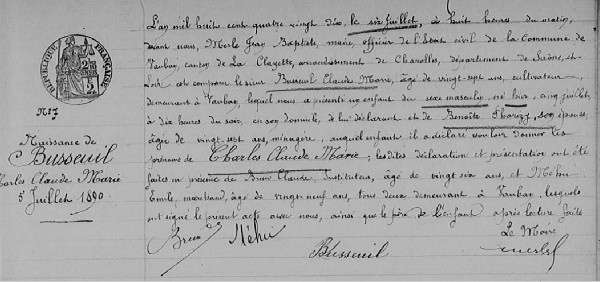 RÉPUBLIQUE FRANÇAISE
N° 7
Naissance de
Busseuil
Charles Claude Marie
5 Juillet 1890
L'an mil huit cent quatre vingt dix, le six Juillet, à huit heures du matin,
devant nous, Merle Jean Baptiste, maire, officier de l'Etat civil de la Commune de
Vauban, canton de La Clayette, arrondissement de Charolles, département de Saône-et-
Loir est comparu le sieur Busseuil Claude Marie, âgé de vingt-sept ans, cultivateur,
demeurant à Vauban, lequel nous a présenté un enfant du sexe masculin, né hier, cinq juillet,
à dix heures du soir, en son domicile, de lui déclarant et de Benoîte, son épouse,
âgée de vingt-sept ans, ménagère, auquel enfant il a déclaré vouloir donner les
prénoms de Charles Claude Marie; lesdites déclaration et présentation ont été
faites en présence de Claude, Instituteur, âgé de vingt six ans, et
Emile, marchand, âgé de vingt neuf ans, tous deux demeurant à Vauban, lesquels
ont signé le présent acte avec nous, ainsi que le père de l'enfant après lecture faite
Le Maire
Busseuil
Merle